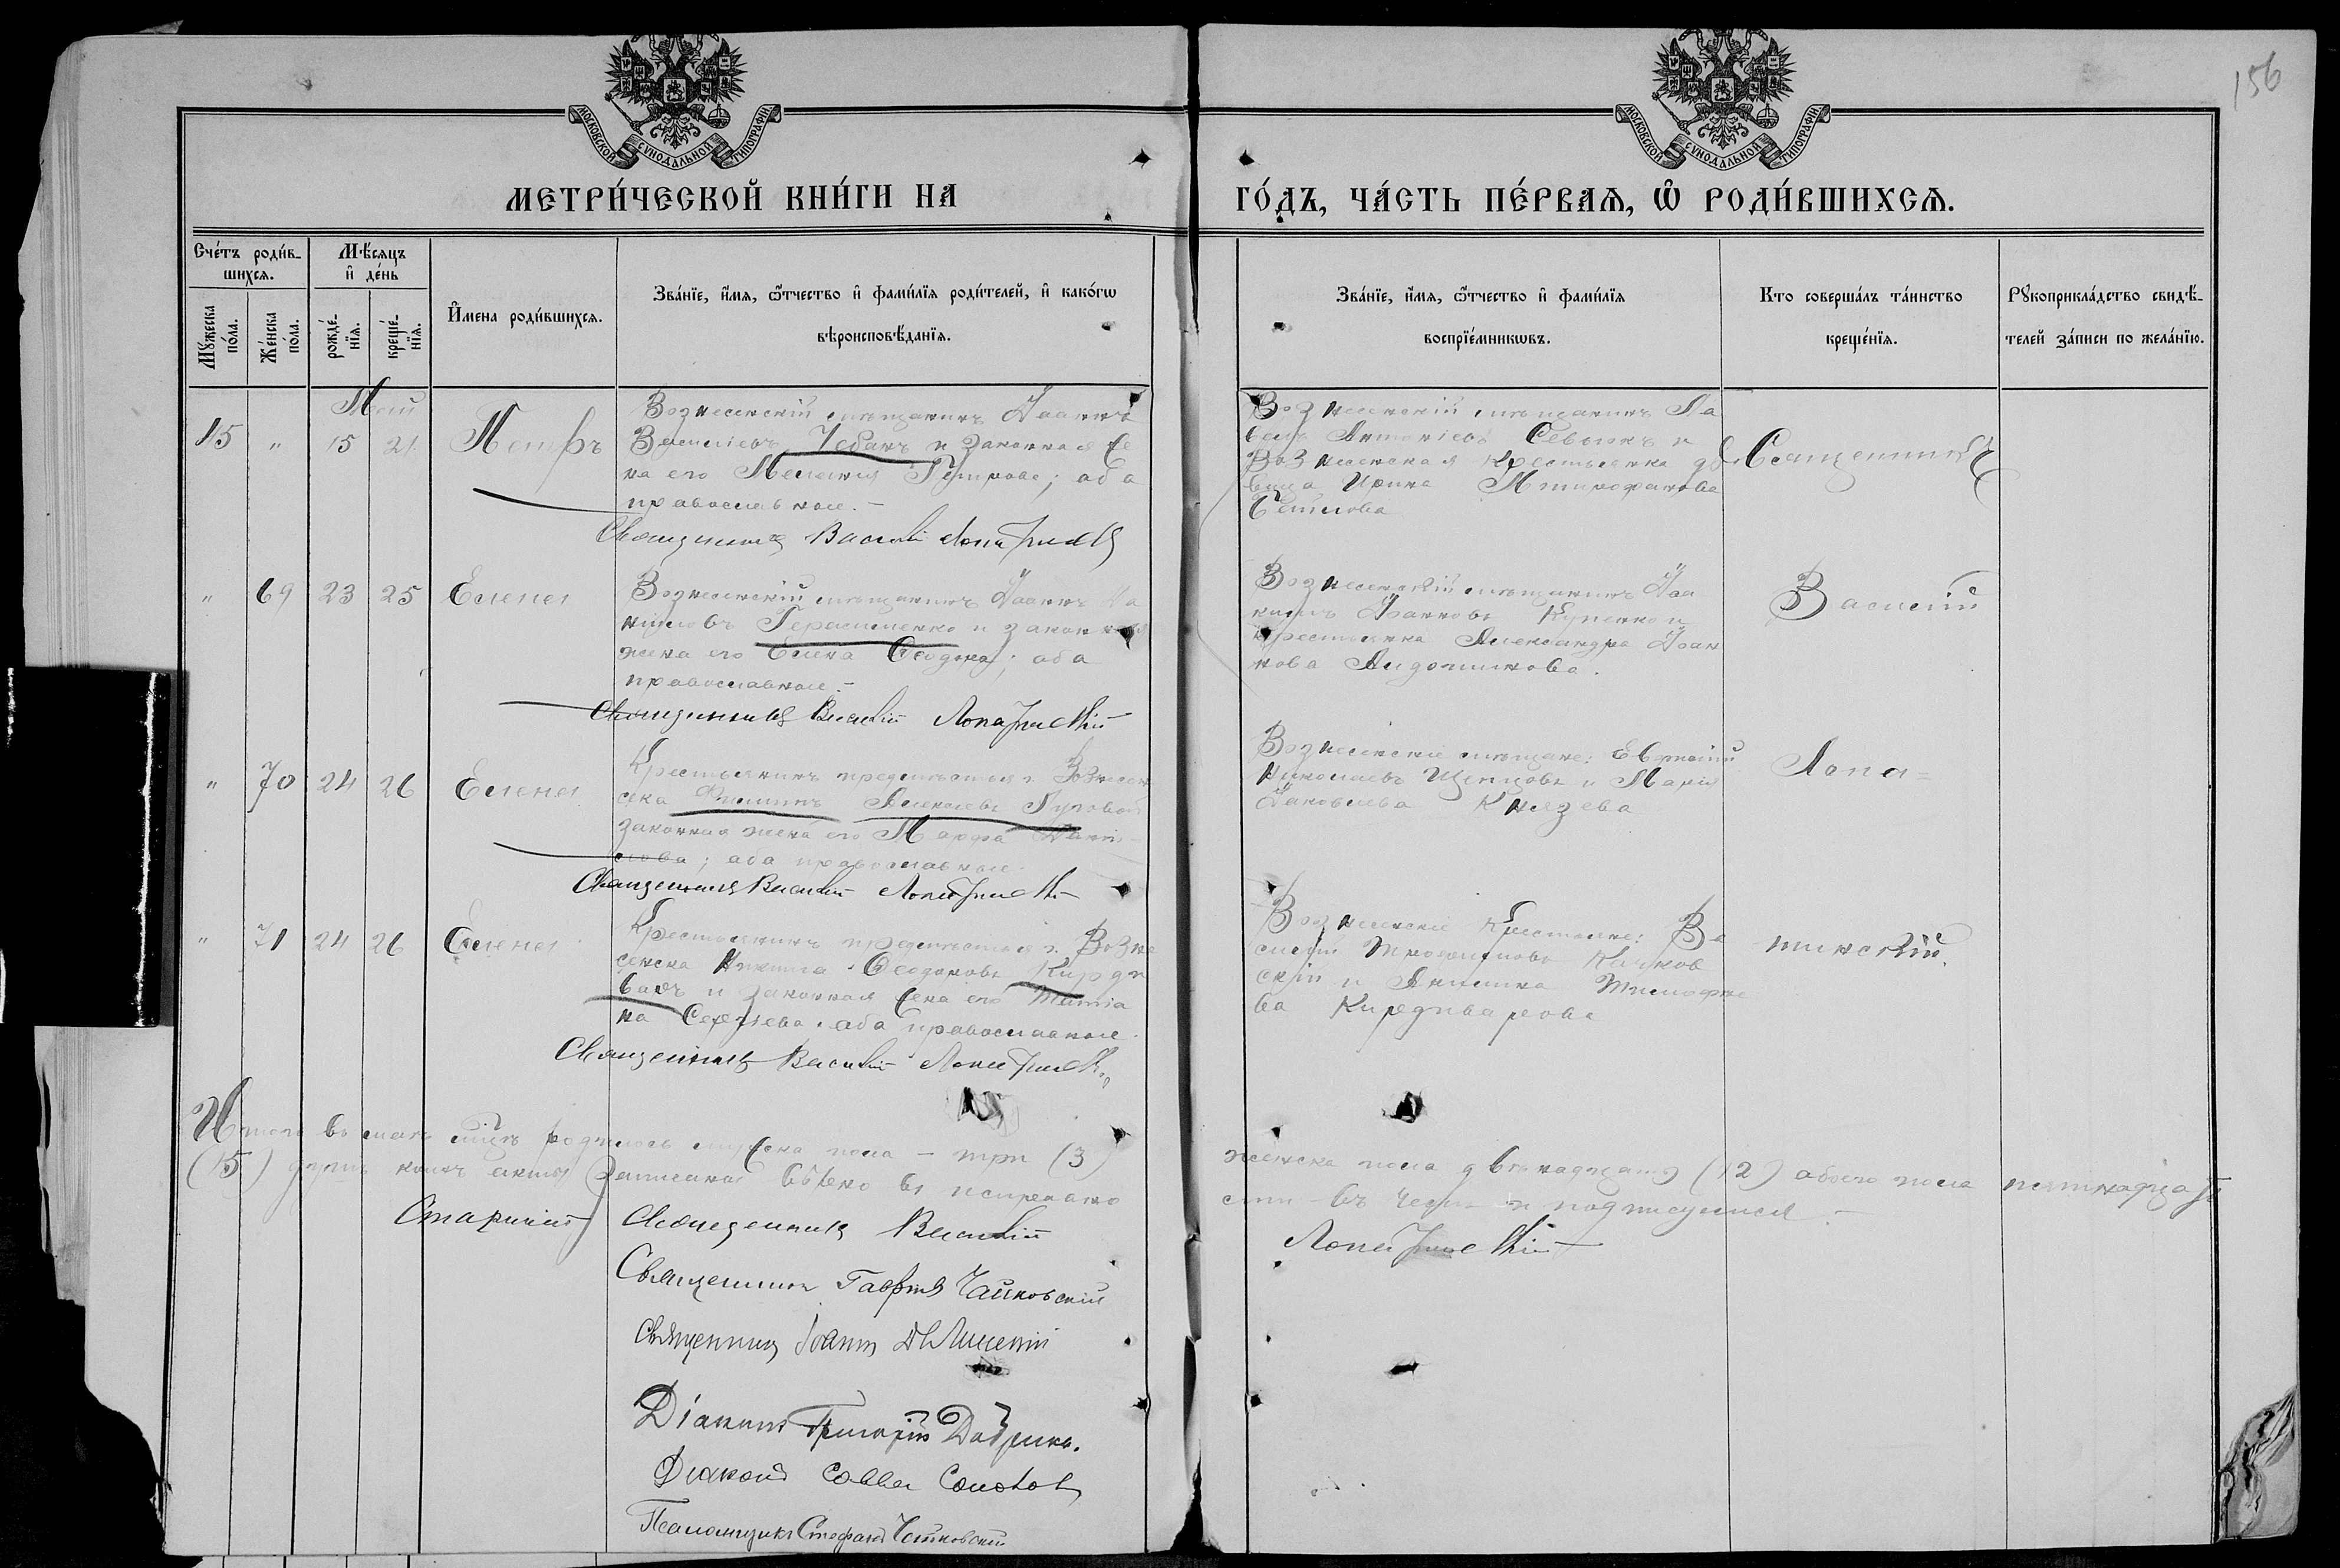 156
МОСКОВСКОЙ СѴНОДАЛЬНОЙ ТИПОГРАФІИ
МОСКОВСКОЙ СѴНОДАЛЬНОЙ ТИПОГРАФІИ
МЕТРИ́ЧЕСКОЙ КНИ́ГИ НА
ГО́ДЪ, ЧА́СТЬ ПЕ́РВАѦ, Ѡ҆ РОДИ́ВШИХСѦ.
Сче́тъ роди́в-
шихсѧ.
Мѣ́сѧцъ
и҆ де́нь
Мꙋ́жеска
по́ла.
Же́нска
по́ла.
рожде́-
нїѧ.
креще́-
нїѧ.
И҆мена роди́вшихсѧ.
Зва́нїе, и҆́мѧ, ѻ҆́тчество и҆ фами́лїѧ роди́телей, и҆ како́гѡ
вѣроисповѣ́данїѧ.
Зва́нїе, и҆́мѧ, ѻ҆́тчество и҆ фами́лїѧ
воспрїе́мникѡвъ.
Кто соверша́лъ та́инство
креще́нїѧ.
Рꙋкоприкла́дство свидѣ́-
телей за́писи по жела́нїю.
Май
15 " 15 21 Петръ
Вознесенскій мѣщанинъ Іоаннъ
Васильевъ Чебанъ и законная же
на его Меланія Петрова; оба
православные.-
Священникъ Василій Лопатинскій
Вознесенскій мѣщанинъ Па
велъ Антоніевъ и
Вознесенская крестьянка дѣ
вица Ирина Митрофанова
Священникъ
" 69 23 25 Елена
Вознесенскій мѣщанинъ Іоаннъ Да
ніиловъ Герасименко и законная
жена его Елена Ѳеодо; оба
православные.-
Священникъ Василій Лопатинскій
Вознесенскій мѣщанинъ Іоа
кимъ Іоанновъ и
крестьянка Александра Іоан
нова
Василій
" 70 24 26 Елена
Крестьянинъ предмѣстья г. Вознесен
ска Филиппъ Алексѣевъ
законная жена его Марфа Дани
лова; оба православные.
Священникъ Василій Лопатинскій
Вознесенскіе мѣщане: Евгеній
Николаевъ и Марія
Яковлева Князева
Лопа=
" 71 24 26 Елена
Крестьянинъ предмѣстья г. Возне
сенска Никита Ѳеодоровъ Кирди
варъ и законная жена его Татіа
на Сергіева. оба православные.
Священникъ Василій Лопатинскій
Вознесенскіе крестьяне: Ва
силій Тимоѳеевъ
скій и Акилина Тимоѳее
ва Кирдиварова
тинскій.
Итого въ маѣ мѣсяцѣ родилось мужеска пола - три (3)
женска пола двѣнадцать (12) обоего пола пятнадцать
(15) душъ коихъ акты записаны вѣрно въ исправно
сти въ чемъ и подписуемся.-
Старшій Священникъ Василій
Лопатинскій
Священникъ Гавріилъ Чайковскій
Священникъ Іоаннъ
Діаконъ Григорій
Діаконъ Савва
Псаломщикъ Стефанъ